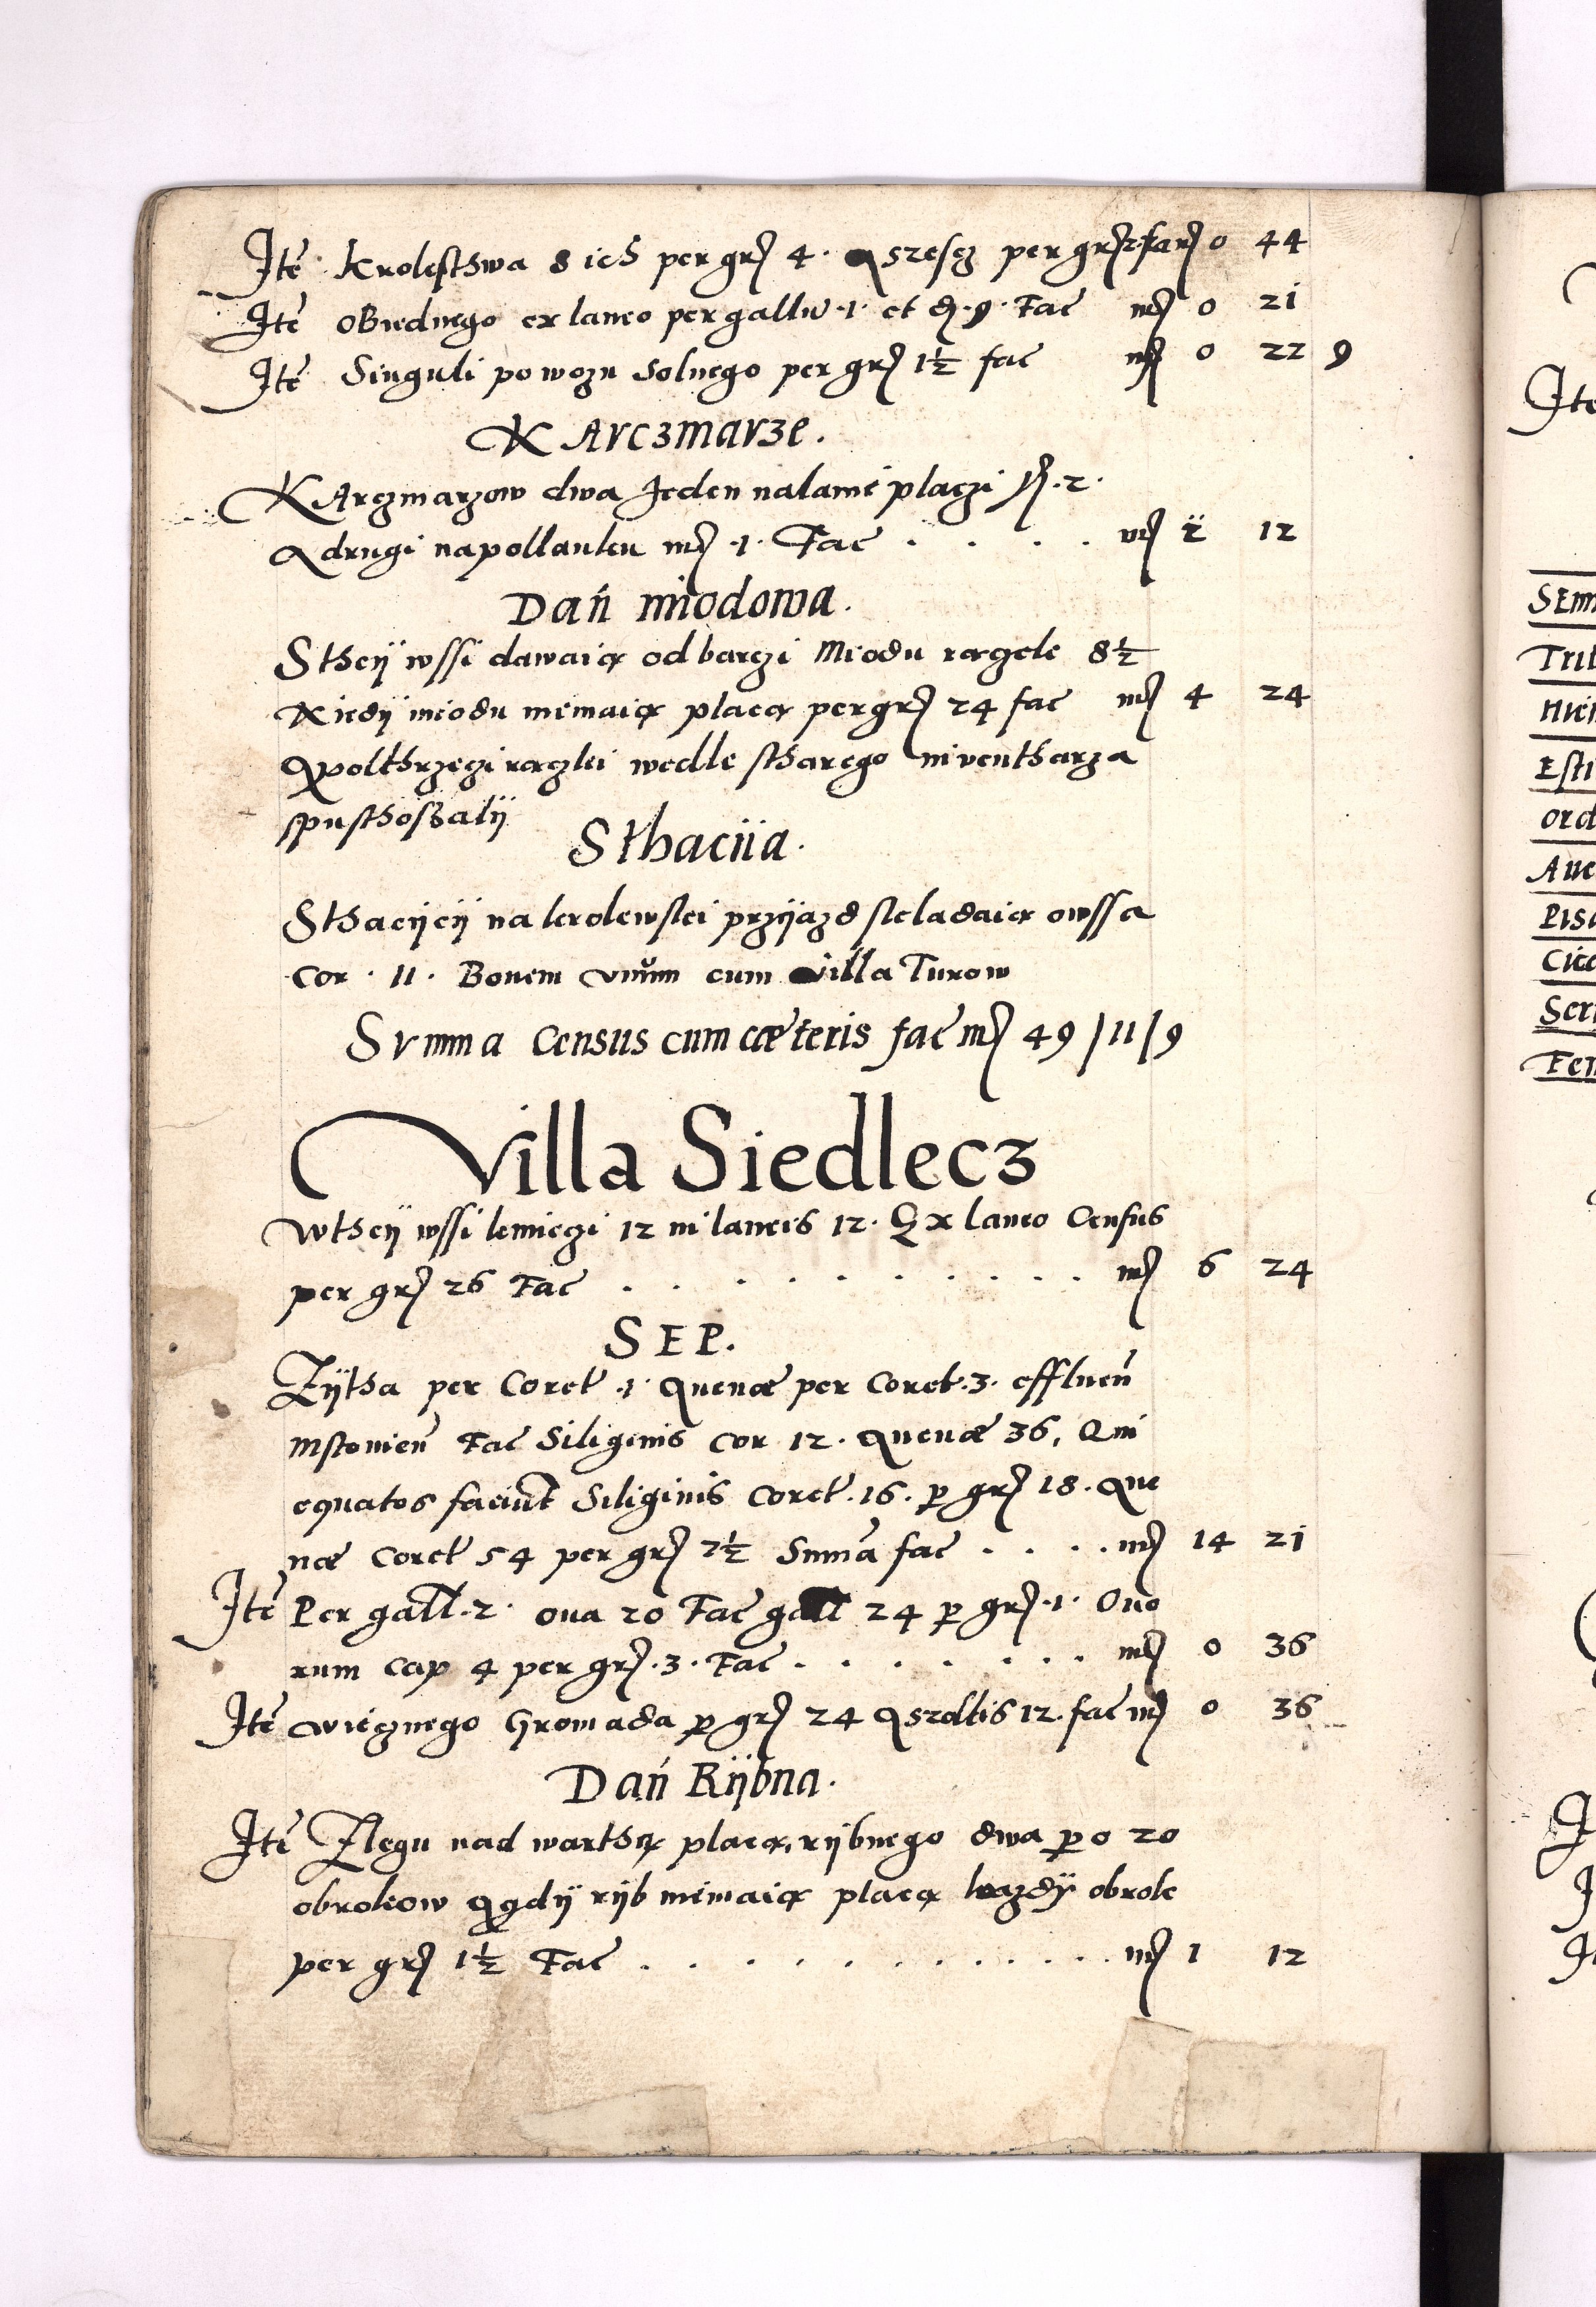 Ite Krolesthwa 8 ich per gr 4. A szescz per gr 2 fac 0 44
Ite obiednego ex laneo per gallu 1. et d. 9. Fac mr 0 21
Ite Singuli powozu Solnego per gr 1½ fac mr 0 22 9
KArczmarze.
KArczmarzow dwa Jeden nalanie placzi 2.
A drugi na pollanku mr 1. Fac . . . . mr 2 12
Dań miodowa.
S they wssi dawaią od barczi Miodu rączek 8½
Kiedy miodu niemaią placą per gr 24 fac mr 4 24
A polthrzeczi rączki wedle stharego inventharza
spusthoszaly
Sthaciia.
Sthacijej na krolewski przijazd skladaią owssa
Cor. 11. Bovem unum cum villa Turow
Summa Census cum cæteris fac mr 49/11/9
Villa Siedlecz
W they wssi kmieczi 12 in laneis 12. Ex laneo Census
per gr 26 Fac . . . . . . . . . . mr 6 24
SEP.
Zijtha per Coret .1. Avenæ per Coret .3. effluen
Mstovien Fac Siliginis Cor 12. Avenæ 36, Qui
equatos faciut Siliginis Coret .16. p gr 18. Ave
næ Coret 54 per gr 7½ Suma fac . . . . mr 14 21
Ite Per gall. 2. ova 20 Fac gall 24 p gr 1. Ovo
rum Cap 4 per gr .3. Fac . . . . . . . mr 0 36
Ite wiecznego Gromada p gr 24 A szoltis 12. fac mr 0 36
Dań Rijbna.
Ite Z legu nad warthą placą, rijbnego dwa po 20
obrokow A gdij rijb niemaią placą kazdij obrok
per gr 1½ Fac . . . . . . . . . . mr 1 12
Ite
SEM
Est
Ord
Ave
Ser